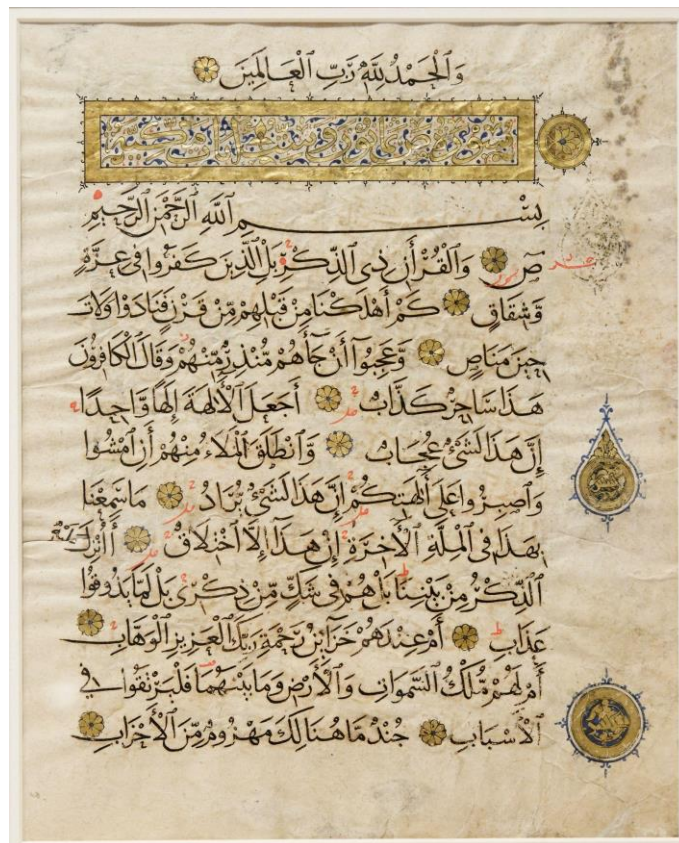 وَٱلْحَمْدُ لِلَّهِ رَبِّ ٱلْعَالَمِينَ
بِسْمِ ٱللَّهِ ٱلرَّحْمَنِ ٱلرَّحِيمِ
صٓ وَٱلْقُرْآنِ ذِى ٱلذِّكْرِ بَلِ ٱلَّذِينَ كَفَرُوا فِى عِزَّةٍ
وَّشِقَاقٍ كَمْ أَهْلَكْنَا مِنْ قَبْلِهِمْ مِّنْ قَرْنٍ فَنَادَوْا وَلَاتَ
حِينَ مَنَاصٍ وَّعَجِبُوٓا أَنْ جَآءَهُمْ مُّنْذِرٌ مِّنْهُمْ وَقَالَ ٱلْكَافِرُونَ
هَذَا سَاحِرٌ كَذَّابٌ أَجَعَلَ ٱلْأٓلِهَةَ إِلَهًا وَّاحِدًا
إِنَّ هَذَا لَشَىْءٌ عُجَابٌ وَّٱنْطَلَقَ ٱلْمَلَأُ مِنْهُمْ أَنِ ٱمْشُوا
وَٱصْبِرُوا عَلَىٓ أٓلِهَتِكُمْ إِنَّ هَذَا لَشَىْءٌ يُّرَادُ مَا سَمِعْنَا
بِهَذَا فِى ٱلْمِلَّةِ ٱلْأٓخِرَةِ إِنْ هَذَآ إِلَّا ٱخْتِلَاقٌ أَأُنْزِلَ عَلَيْهِ
ٱلذِّكْرُ مِنْ بَيْنِنَا بَلْ هُمْ فِى شَكٍّ مِّنْ ذِكْرِى بَلْ لَمَّا يَذُوقُوا
عَذَابِ أَمْ عِنْدَهُمْ خَزَآئِنُ رَحْمَةِ رَبِّكَ ٱلْعَزِيزِ ٱلْوَهَّابِ
أَمْ لَهُمْ مُّلْكُ ٱلسَّمَوَاتِ وَٱلْأَرْضِ وَمَا بَيْنَهُمَا فَلْيَرْتَقُوا فِى
ٱلْأَسْبَابِ جُنْدٌ مَا هُنَالِكَ مَهْزُومٌ مِّنَ ٱلْأَحْزَابِ